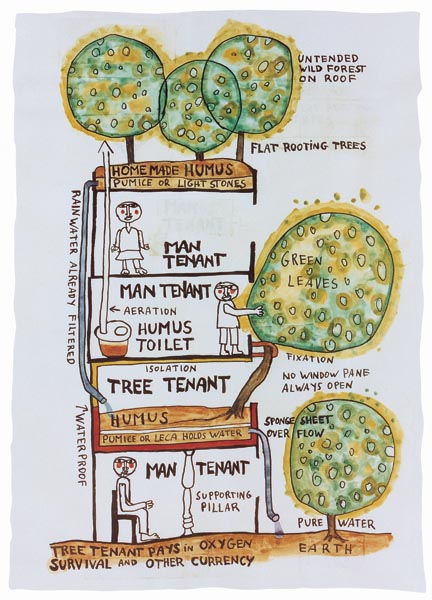 UNTENDED
WILD FOREST
ON ROOF
FLAT ROOTING TREES
HOME MADE HUMUS
PUMICE OR LIGHT STONES
RAINWATER ALREADY FILTERED
MAN
TENANT
MAN TENANT
← AERATION
HUMUS
TOILET
GREEN
LEAVES
FIXATION
NO WINDOW PANE
ALWAYS OPEN
ISOLATION
TREE TENANT
HUMUS
PUMICE OR LECA HOLDS WATER
SPONGE SHEET
OVER FLOW
↑ WATERPROOF
MAN TENANT
SUPPORTING
PILLAR
PURE WATER
EARTH
TREE TENANT PAYS IN OXYGEN
SURVIVAL AND OTHER CURRENCY